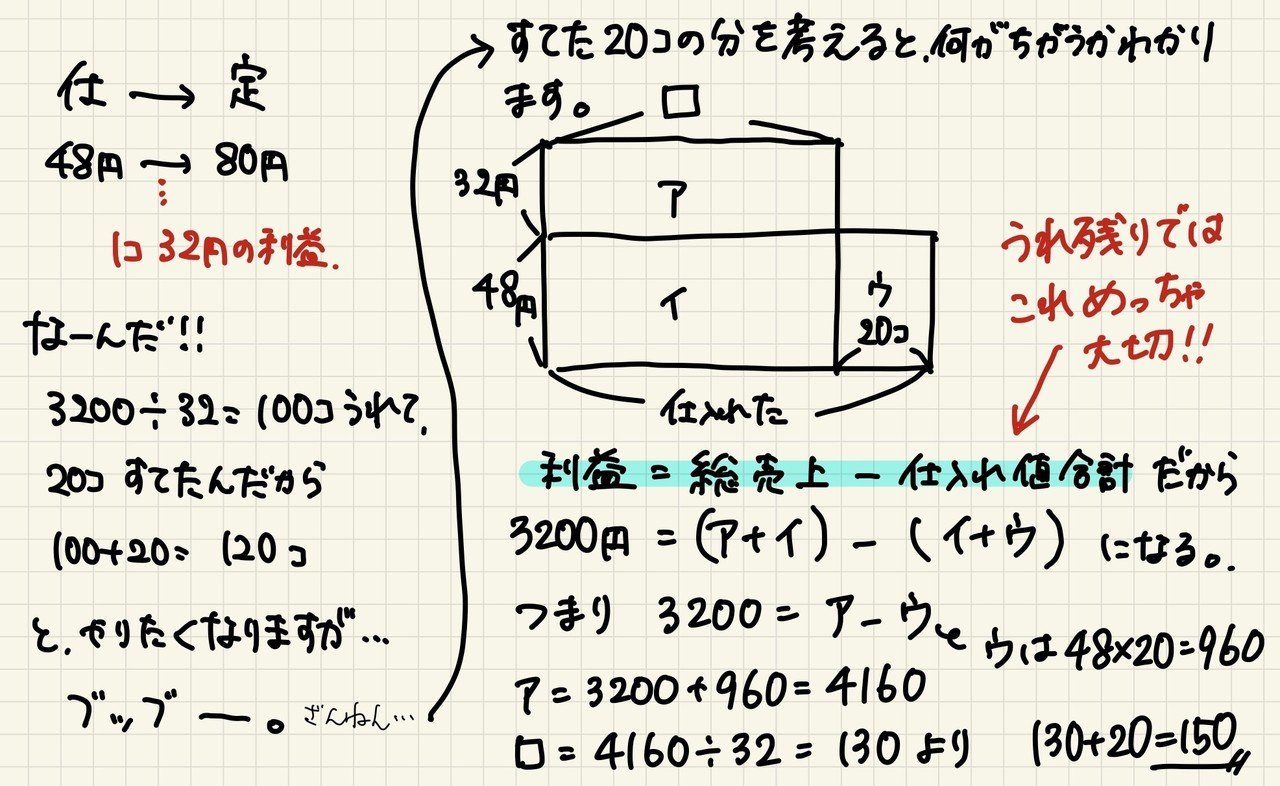 仕 → 定
48円 → 80円
1コ 32円の利益.
なーんだ!!
3200÷32=100コうれて,
20コ すてたんだから
100+20= 120コ
と,やりたくなりますが…
ブッブー。ざんねん…
すてた20コの分を考えると,何がちがうかわかり
ます。
□
32円
ア
48円
イ
ウ
20コ
仕入れた
うれ残りでは
これめっちゃ
大切!!
利益=総売上-仕入れ値合計だから
3200円=(ア+イ)-(イ+ウ)になる。
つまり 3200=ア-ウで
ウは48×20=960
ア=3200+960=4160
□=4160÷32=130より
130+20=150